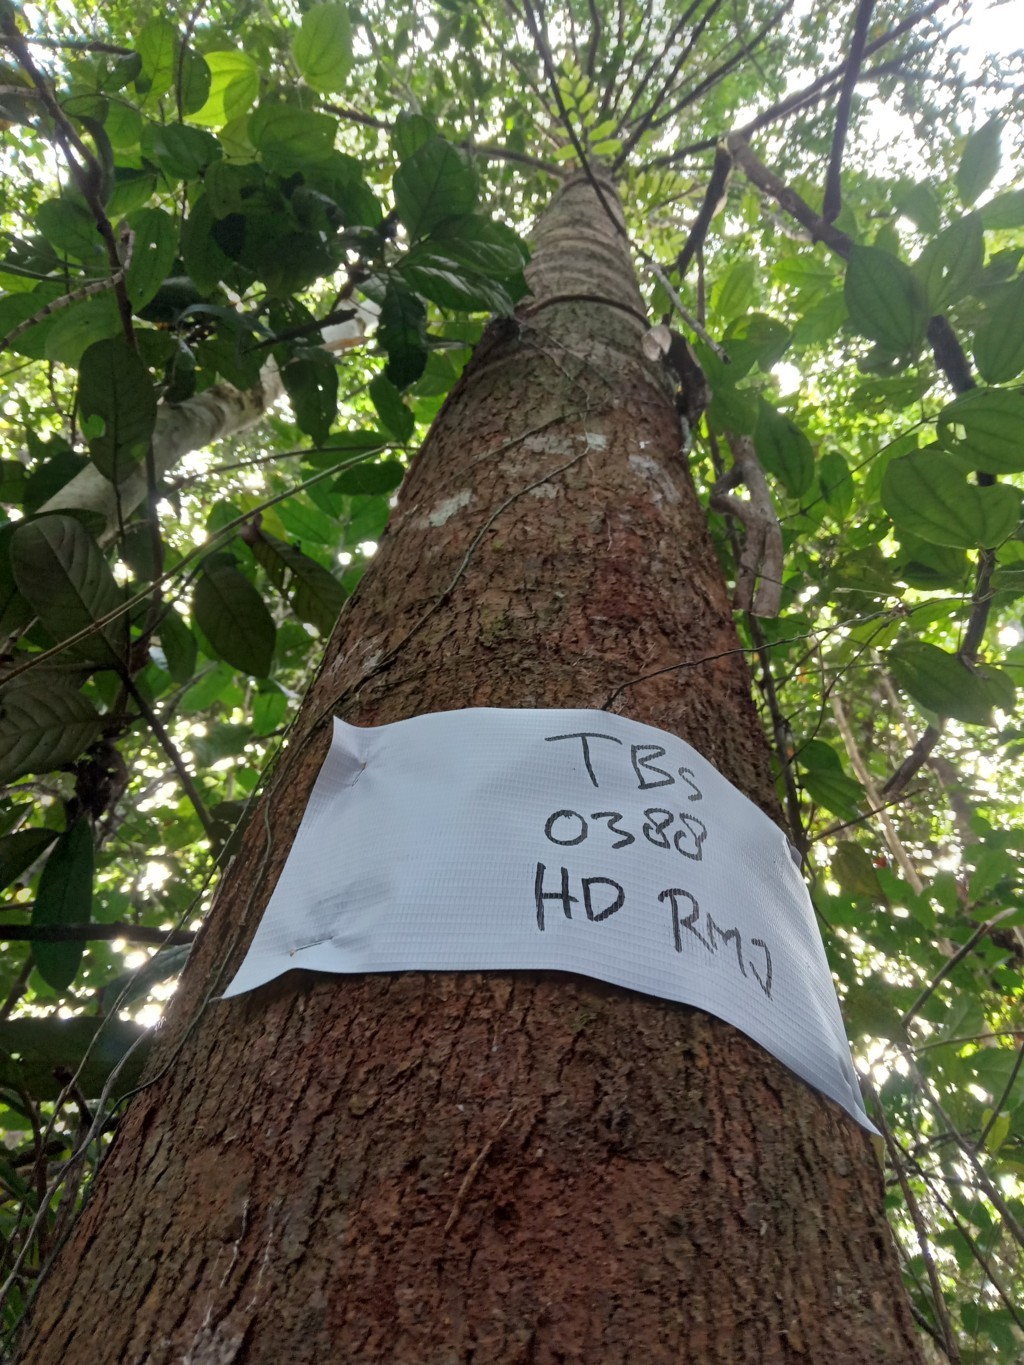 TBs
0388
HD RMJ